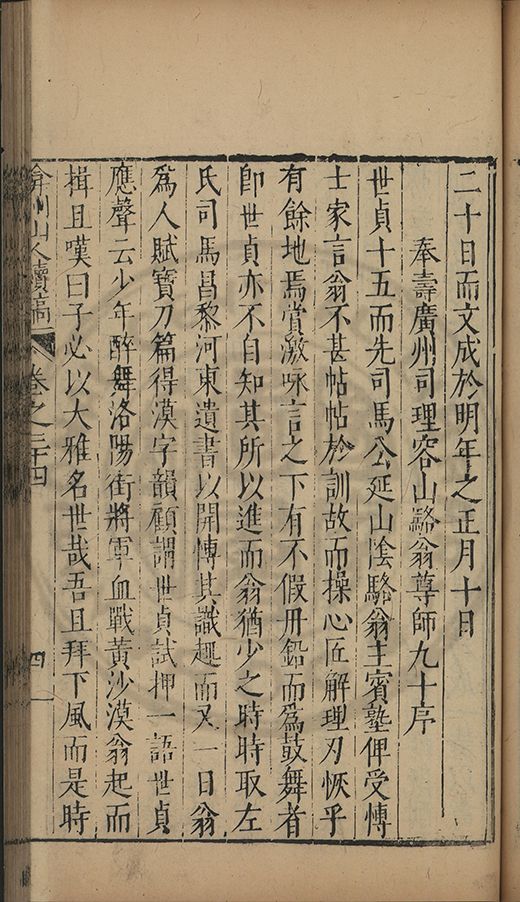 二十日而文成於明年之正月十日
奉壽廣州司理容山駱翁尊師九十序
世貞十五而先司馬公延山陰駱翁主賓塾俾受愽
士家言翁不甚帖帖於訓故而操心匠解理刃恢乎
有餘地焉賞激咏言之下有不假丹鉛而爲鼓舞者
卽世貞亦不自知其所以進而翁猶少之時時取左
氏司馬昌黎河東遺書以開愽其識趣而又一日翁
爲人賦寶刀篇得漠字韻顧謂世貞試押一語世貞
應聲云少年醉舞洛陽街將軍血戰黃沙漠翁起而
揖且嘆曰子必以大雅名世哉吾且拜下風而是時
弇州山人續稿 卷之三十四 四